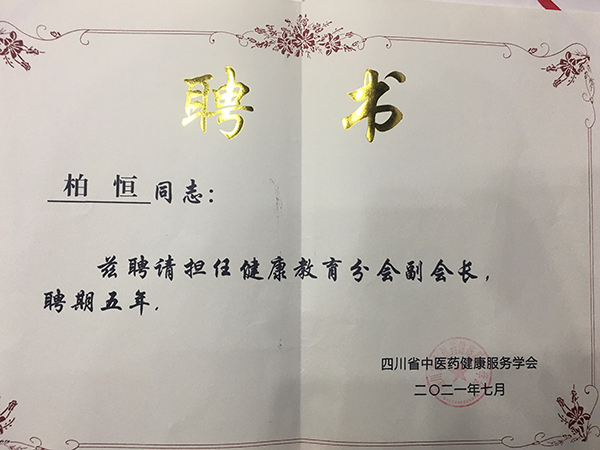 聘书
柏恒同志：
兹聘请担任健康教育分会副会长，
聘期五年。
四川省中医药健康服务学会
二〇二一年七月